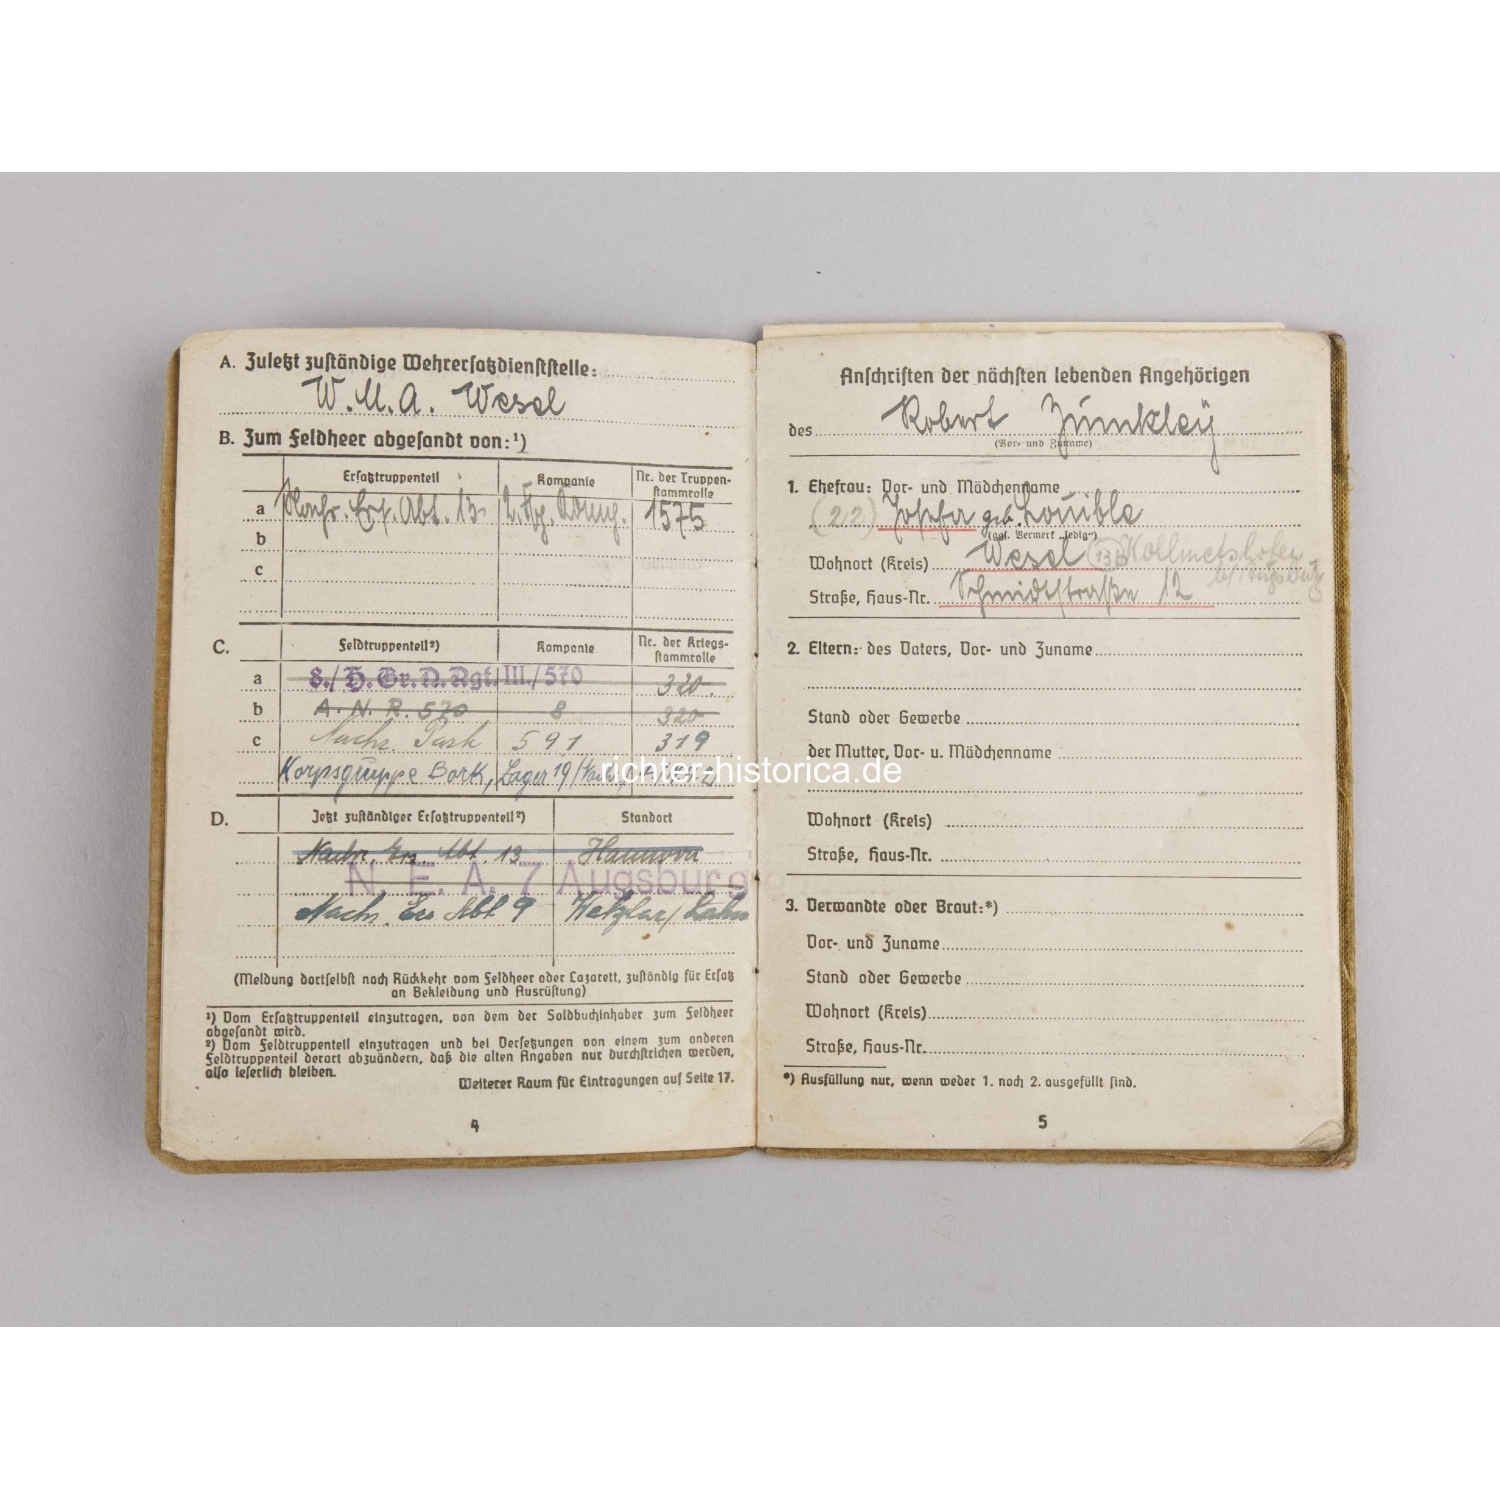 A. Zuletzt zuständige Wehrersatzdienststelle:
W. M. A. Wesel
B. Zum Feldheer abgesandt von:¹)
Ersatztruppenteil Kompanie Nr. der Truppenstammrolle
a Ers. Abt. 13 1575
b
c
C. Feldtruppenteil²) Kompanie Nr. der Kriegsstammrolle
a 8./H. Gr. N. Rgt. III./570 320.
b A. N. R. 570 8 320
c Nachr. Park 591 319
Korpsgruppe Bork, Lager 19
richter-historica.de
D. Jetzt zuständiger Ersatztruppenteil²) Standort
Nachr. Ers. Abt. 13 Hannover
N. E. A. 7 Augsburg
Nachr. Ers Abt 9 Wetzlar/Lahn
(Meldung dortselbst nach Rückkehr vom Feldheer oder Lazarett, zuständig für Ersatz
an Bekleidung und Ausrüstung)
¹) Vom Ersatztruppenteil einzutragen, von dem der Soldbuchinhaber zum Feldheer
abgesandt wird.
²) Vom Feldtruppenteil einzutragen und bei Versetzungen von einem zum anderen
Feldtruppenteil derart abzuändern, daß die alten Angaben nur durchstrichen werden,
also leserlich bleiben.
Weiterer Raum für Eintragungen auf Seite 17.
4
Anschriften der nächsten lebenden Angehörigen
des Robert
(Vor- und Zuname)
1. Ehefrau: Vor- und Mädchenname
(22) geb.
(ggf. Vermerk „ledig“)
Wohnort (Kreis) Wesel
Straße, Haus-Nr. Schmidtstraße 12
2. Eltern: des Vaters, Vor- und Zuname
Stand oder Gewerbe
der Mutter, Vor- u. Mädchenname
Wohnort (Kreis)
Straße, Haus-Nr.
3. Verwandte oder Braut:*)
Vor- und Zuname
Stand oder Gewerbe
Wohnort (Kreis)
Straße, Haus-Nr.
*) Ausfüllung nur, wenn weder 1. noch 2. ausgefüllt sind.
5